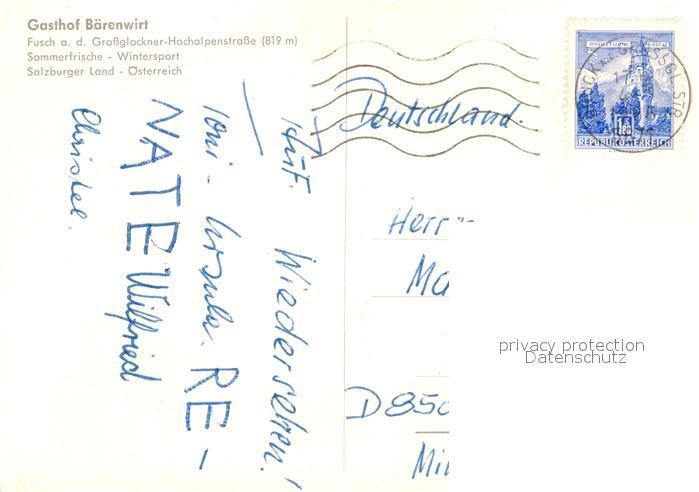 Gasthof Bärenwirt
Fusch a. d. Großglockner-Hochalpenstraße (819 m)
Sommerfrische - Wintersport
Salzburger Land - Österreich
Auf Wiedersehen!
Toni - Ursula. RE-
NATE Wilfried
Christel.
Deutschland.
Herr
Ma
D 850
REPUBLIK ÖSTERREICH
privacy protection
Datenschutz